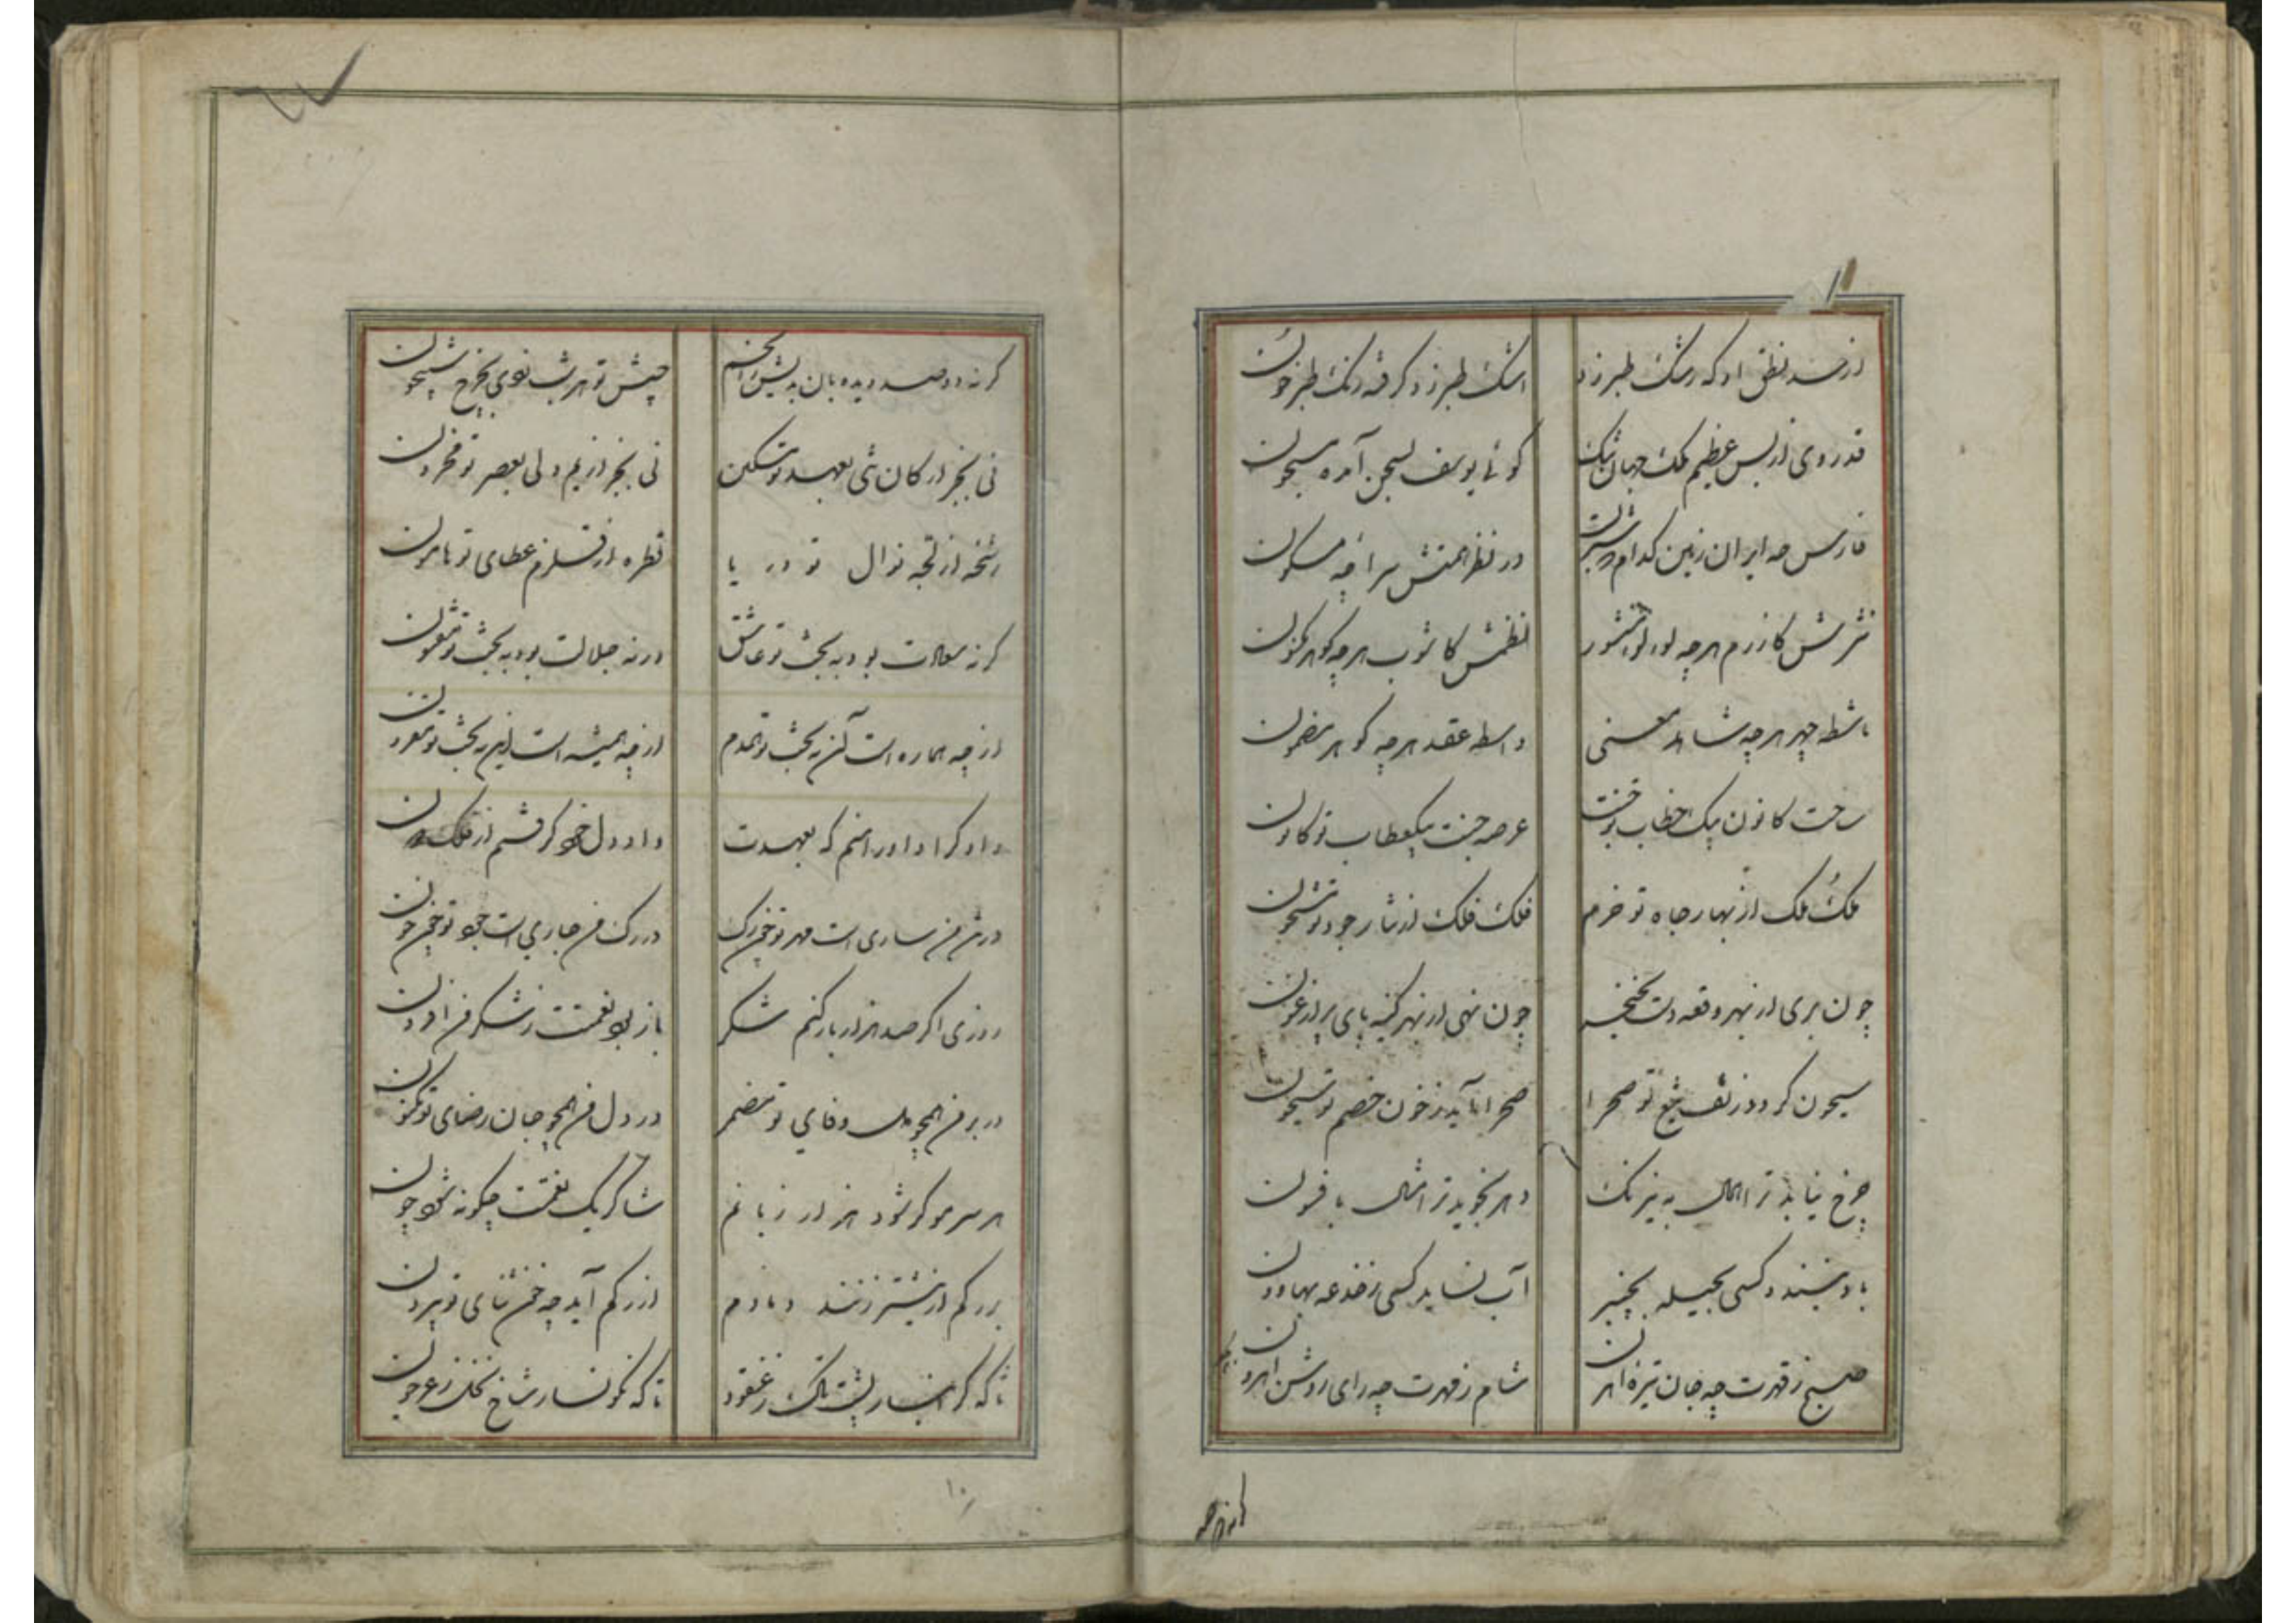 از حسد نطق او که رشک طبرزد
اشک طبرزد گرفته رنگ طبرخون
قدر وی از بس عظیم ملک جهان تنگ
گوئی یوسف بسجن آمده مسجون
فارس چه ایران زمین کدام
در نظر همتش سراچه مسکون
نثرش کازرم هرچه لؤلؤ منثور
نظمش کاشوب هرچه گوهر مکنون
ماشطه چهر هرچه شاهد معنی
واسطه عقد هرچه گوهر مضمون
ساحت کانون بیک خطاب تو جنت
عرصه جنت بیک عطاب تو کانون
ملک ملک از بهار جاه تو خرم
فلک فلک از نثار جود تو مشحون
چون بری از بهر وقعه دست بخنجر
چون نهی از بهر کینه پای بر ارغون
سیحون گردد ز تف تیغ تو صحرا
صحرا آید ز خون خصم تو سیحون
چرخ نیابد ز امثال به نیرنگ
دهر نجوید ز امثال بافسون
باد نبندد کسی بحیله بچنبر
آب نساید کسی ز خدعه بهاون
صبح ز قهرت چه جان تیره اهریمن
شام ز مهرت چه رای روشن اهرون
گر نه دو صد دیده بان بدیش ز انجم
جیش تو هر شب نمودی بچرخ شبیخون
نی بخبر از کان نئی بعهد تو مسکین
نی بخبر از یم ولی بعصر تو محزون
رشحه از لجه نوال تو دریا
قطره از قلزم عطای تو هامون
گر نه سعادت بود به بخت تو عاشق
ور نه جلالت بود به بخت تو مفتون
از چه هماره است آن به بخت تو همدم
از چه همیشه است این به بخت تو مقرون
دادگرا داورا منم که بعهدت
داد دل خود گرفتم از فلک دون
در تن من ساری است مهر تو چون رگ
در رگ من جاری است جود تو چون خون
روزی اگر صد هزار بار کنم شکر
باز بود نعمتت ز شکر من افزون
در بر من همچو دل وفای تو مضمر
در دل من همچو جان رضای تو مکنون
هر سر مو گر شود هزار زبانم
شاکر یک نعمتت چگونه شود چون
بر رگم ار نیشتر زنند دمادم
از رگم آید چه خون ثنای تو بیرون
تا که گرانبار پشت تاک ز عنقود
تا که نگونسار شاخ نخل ز عرجون
گر نه دو صد